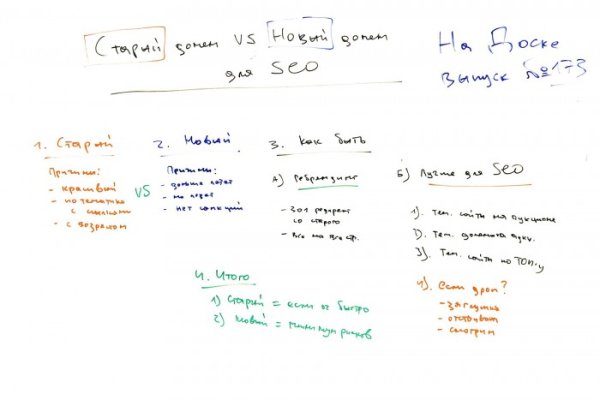 Старый домен VS Новый домен
для SEO
На Доске
выпуск №173
1. Старый
Причины:
- красивый
- по тематике
с ссылками
- с возрастом
VS
2. Новый
Причины:
- дольше
- нет санкций
3. Как быть
А) Ребрендинг
- 301 редирект
со старого
- Все на
Б) Лучше для SEO
1). Тем. сайты на аукционе
2). Тем.
3). Тем. сайты по ТОП-у
4). если дроп?
- загнулся
- отстаивать
- смотрим
4. Итого
1) Старый = если оч быстро
2) Новый = минимум рисков